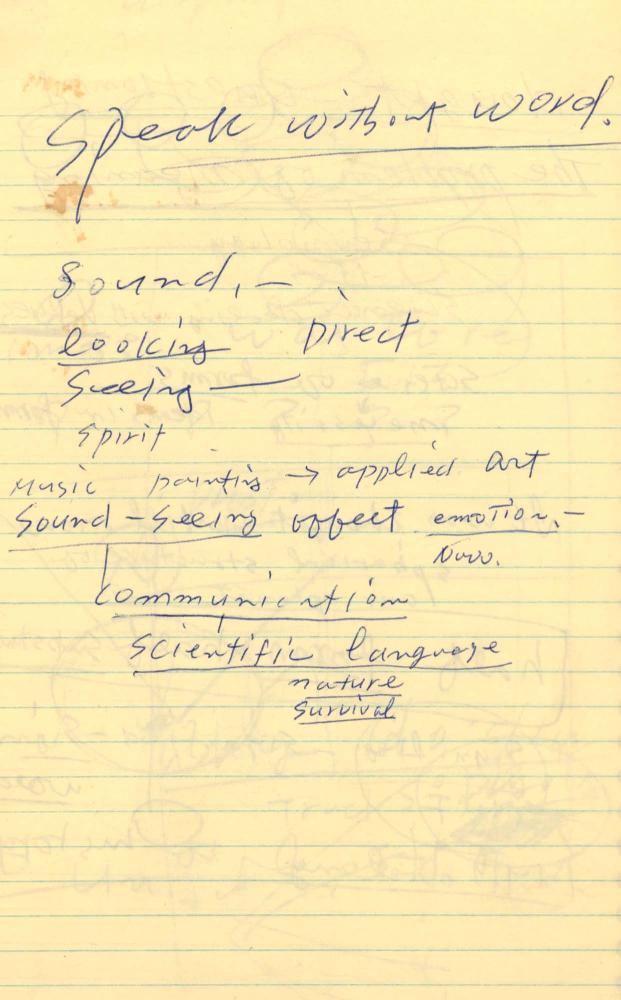 Speak without word.
Sound, –
looking Direct
Seeing —
Spirit
Music painting → applied art
Sound – Seeing effect emotion. –
Communication
Scientific language
nature
Survival